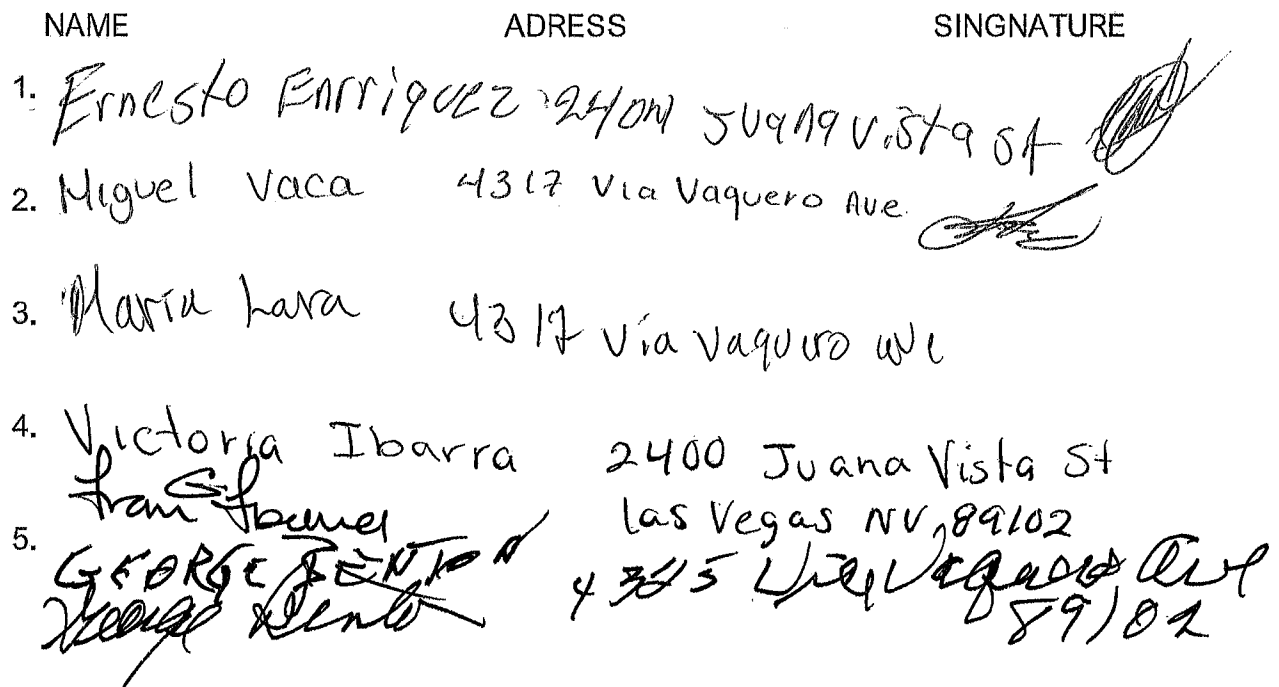 NAME ADRESS SINGNATURE
1. Ernesto Enrriquez Juana Vista St
2. Miguel Vaca 4317 Via Vaquero Ave.
3. Maria Lara 4317 Vía Vaquero ave
4. Victoria Ibarra 2400 Juana Vista St
Las Vegas NV, 89102
5. GEORGE BENTON Ave
George Benton 89102